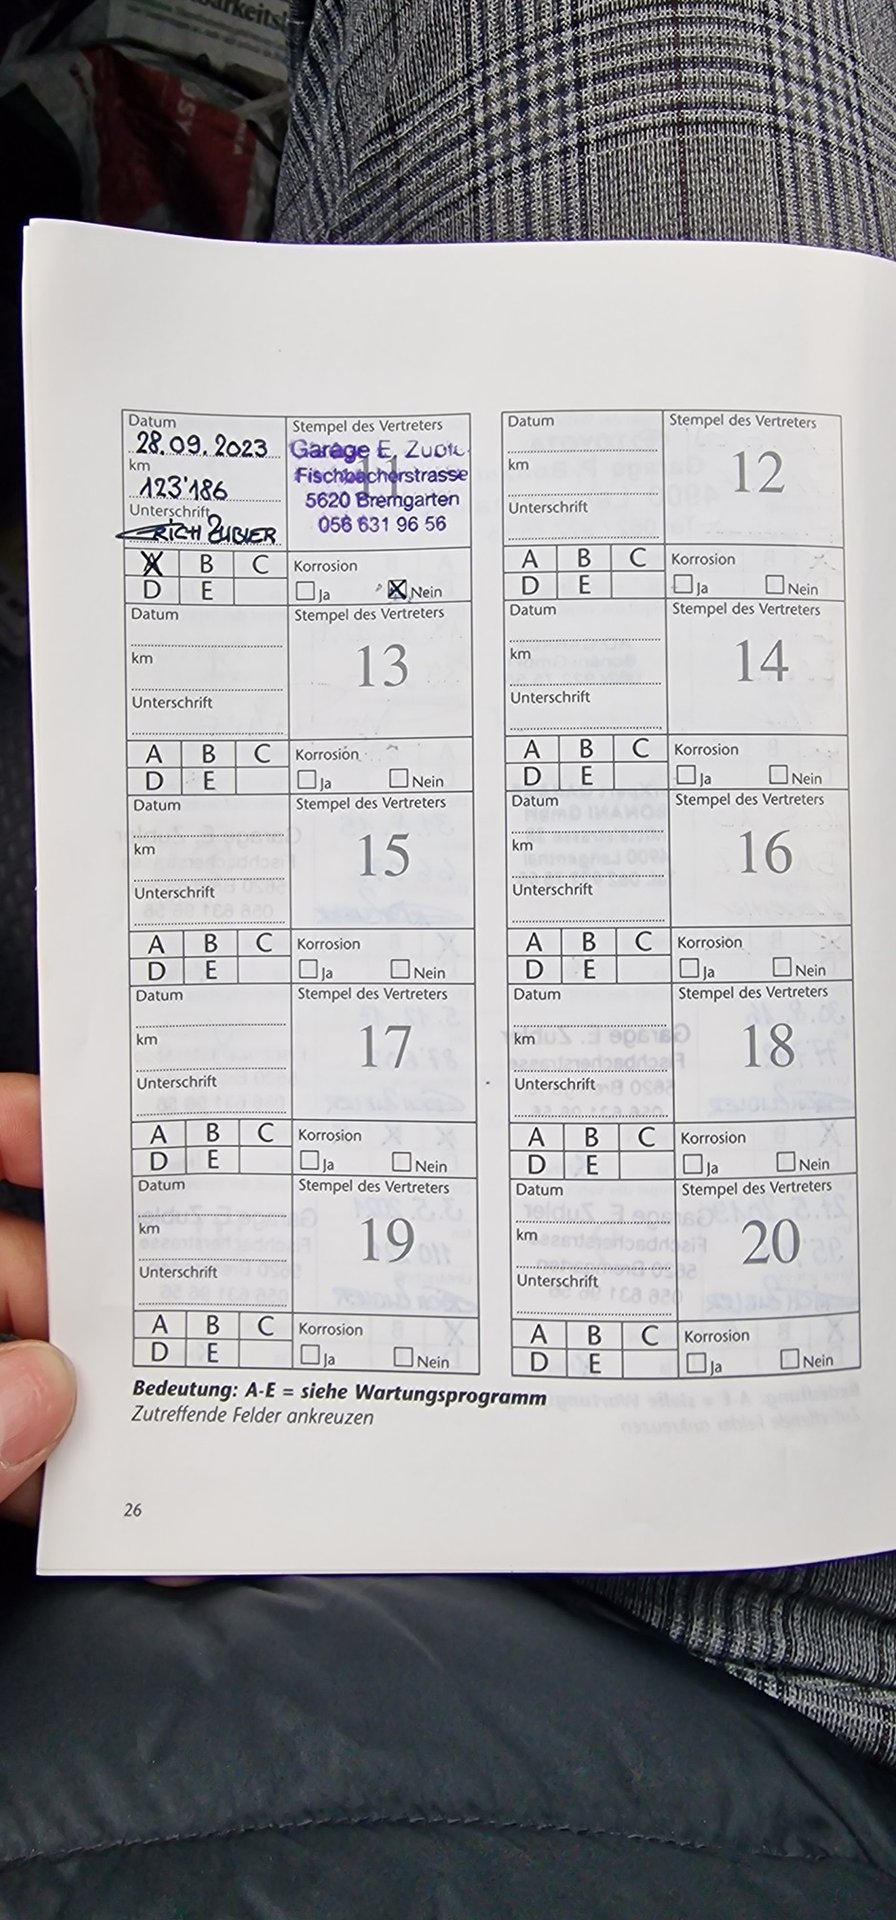 Datum
28.09.2023
km
123'186
Unterschrift
ERICH ZUBLER
Stempel des Vertreters
11
Garage E. Zubler
Fischbacherstrasse
5620 Bremgarten
056 631 96 56
X B C
D E
Korrosion
Ja Nein
Datum
km
Unterschrift
Stempel des Vertreters
12
A B C
D E
Korrosion
Ja Nein
Datum
km
Unterschrift
Stempel des Vertreters
13
A B C
D E
Korrosion
Ja Nein
Datum
km
Unterschrift
Stempel des Vertreters
14
A B C
D E
Korrosion
Ja Nein
Datum
km
Unterschrift
Stempel des Vertreters
15
A B C
D E
Korrosion
Ja Nein
Datum
km
Unterschrift
Stempel des Vertreters
16
A B C
D E
Korrosion
Ja Nein
Datum
km
Unterschrift
Stempel des Vertreters
17
A B C
D E
Korrosion
Ja Nein
Datum
km
Unterschrift
Stempel des Vertreters
18
A B C
D E
Korrosion
Ja Nein
Datum
km
Unterschrift
Stempel des Vertreters
19
A B C
D E
Korrosion
Ja Nein
Datum
km
Unterschrift
Stempel des Vertreters
20
A B C
D E
Korrosion
Ja Nein
Bedeutung: A-E = siehe Wartungsprogramm
Zutreffende Felder ankreuzen
26